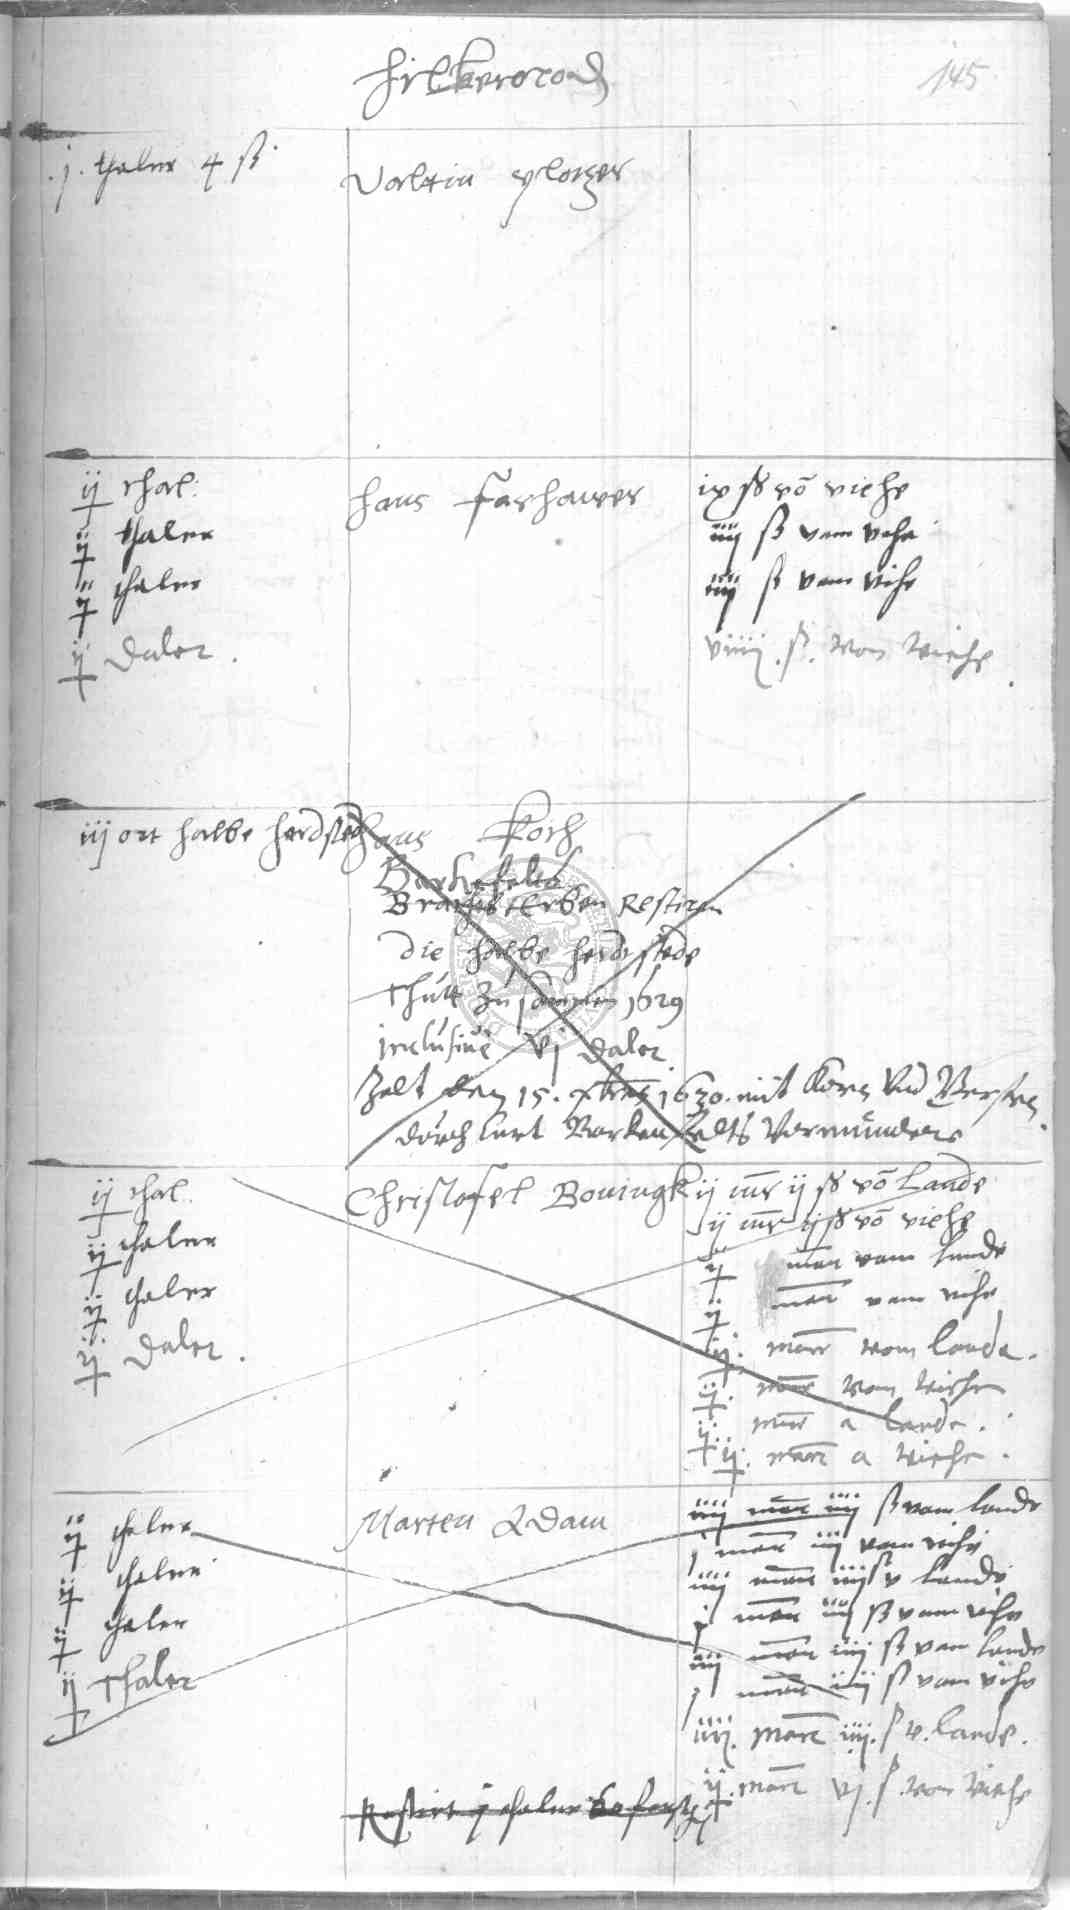 Hilkerorod
145
j. thaler 4 ß.
Valtin
ij thal.
ij thaler
ij thaler
ij Daler.
Hans Farhawer
ix ß võ viehe
iiij ß vam vehe
iiij ß vam vihe
viiij. ß. von Viehe.
iij ort halbe herdsted
Hans Koch
Erben Restiren
die halbe herdtstede
thutt zusammen 1629
inclusive vj Daler
Zalt den 15. 1630. mit Korn Vnd
durch Curt Barkenfeldts Vormunders
ij thal.
ij thaler
ij thaler
ij Daler.
Christofel Boningk
ij mr ij ß võ Lande
ij mr ij ß võ viehe
ij marr vam lande
ij marr vam vihe
ij. marr vom lande.
ij. marr von Viehe
ij marr a lande.
ij. marr a Viehe.
ij thaler
ij thaler
ij thaler
ij Thaler
Marten Adam
iiij marr iiij ß vam lande
j marr iiij vam vihe
iiij marr iiij ß v lande
j marr iiij ß vam vihe
iiij marr iiij ß van lande
j marr iiij ß vam vihe
iiij. marr iiij. ß v. Lande.
ij. marr vj. ß. von Viehe
Restirt ij thaler